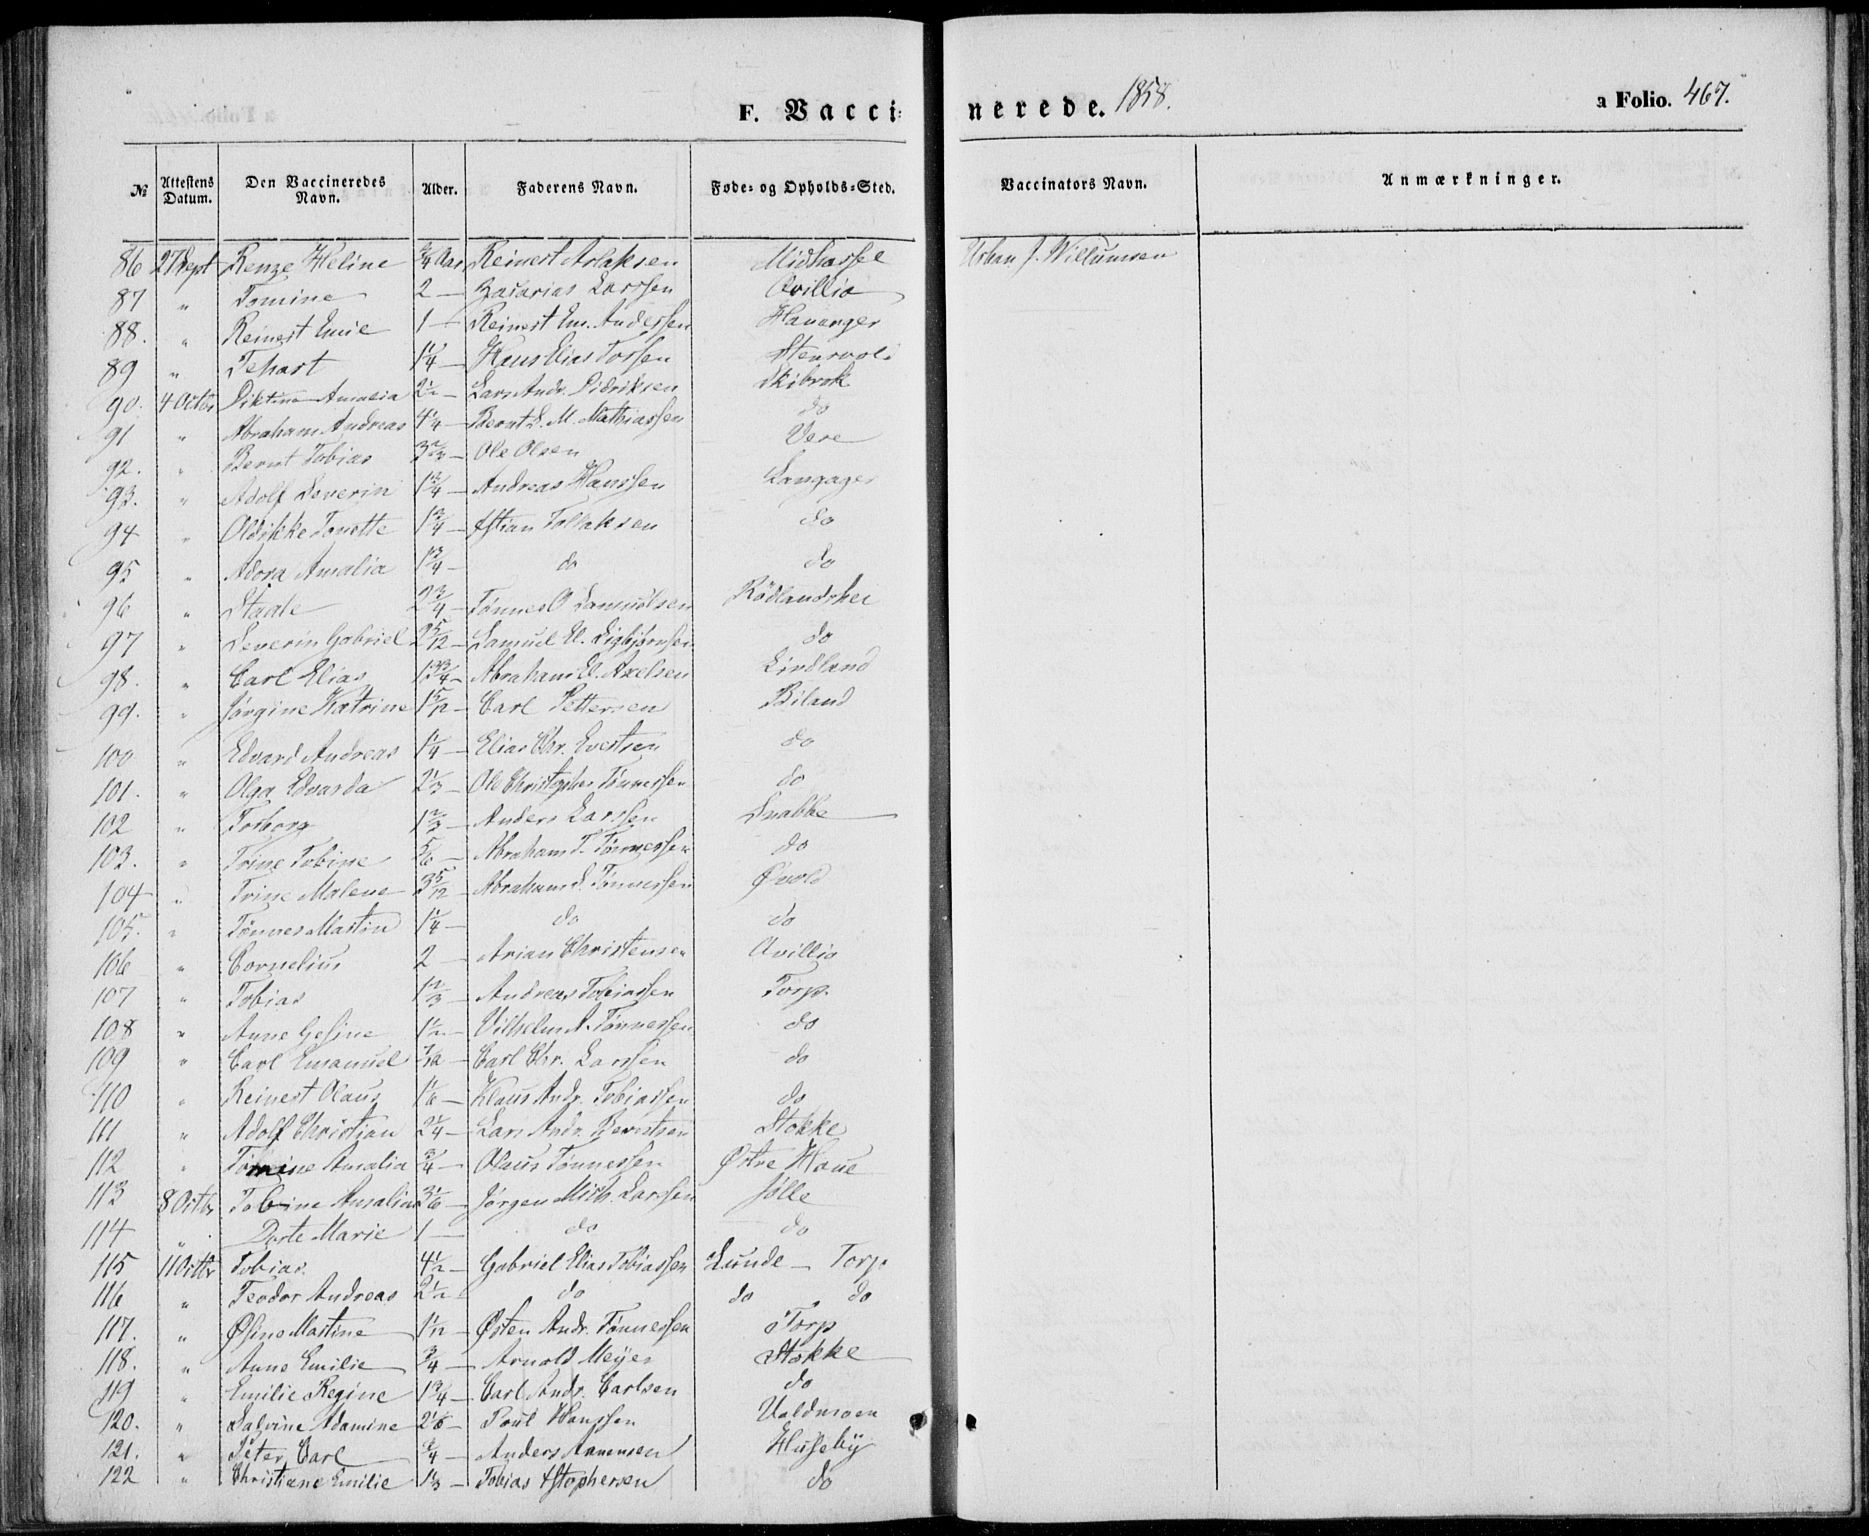 F. Vaccinerede. 1858. a Folio. 467.
№ Attestens Datum. Den Vaccineredes Navn. Alder. Faderens Navn. Føde- og Opholds-Sted. Vaccinators Navn. Anmærkninger.
86 27 Sept Renze Heline 3/4 Aar Reinert Aslaksen Midhassel Urban J. Willumsen
87 " Tomine 2 — Zacarias Larssen Qvillio
88. " Reinert Emie 1 — Reinert Em. Anderssen Hananger
89 " Tehart 1 1/4 — Hans Elias Torssen
90. 4 Octbr Amalia 2 1/2 — Lars Andr. Didriksen Skibrok
91 " Abraham Andreas 4 1/4 — Bernt S. M. Mathiassen do
92. " Bernt Tobias 3 2/3 — Ole Olsen Vere
93. " Adolf Severin 1 3/4 — Andreas Hanssen Langager
94 " Oldikke Tonette 1 3/4 — Tollaksen do
95 " Adora Amalia 1 3/4 — do do
96 " Staale 2 3/4 — Tønnes O Samuelsen Rødlandshei
97 " Severin Gabriel 2 5/12 — Samuel El. Sigbjørnsen do
98. " Carl Elias 1 3/4 — Abraham El. Axelsen Lindland
99. " Jørgine Katrine 1 5/12 — Carl Pettersen Biland
100 " Edvard Andreas 1 1/4 — Elias Chr. Evertsen do
101. " Olga Edvarda 2 1/3 — Ole Christopher Tønnessen do
102 " Torborg 1 2/3 — Anders Larssen Snabbe
103. " Trine Tobine 5/6 — Abraham T. Tønnessen do
104 " Trine Malene 3 5/12 — Abraham S. Tønnessen Øvold
105. " Tønnes Martin 1 1/4 — do do
106 " Cornelius 2 — Arian Christensen Qvillio
107 " Tobias 1 2/3 — Andreas Tobiassen Torp.
108 " Anne Gesine 1 1/2 — Vilhelm A. Tønnessen do
109 " Carl Emanuel — Carl Chr. Larssen do
110 " Reinert Olaus 1 1/6 — Klaus Andr. Tobiassen do
111 " Adolf Christian 2 1/4 — Lars Andr. Berntsen Stokke
112 " Tomine Amalia 3/4 — Olaus Tønnessen Østre Haue
113 8 Octbr Tobine Amalia 3 1/6 — Jørgen Mich. Larssen Jølle
114 " Dorte Marie 1 — do do
115 11 Octbr Tobias 4 1/2 — Gabriel Elias Tobiassen Lunde — Torp
116 " Teodor Andreas 2 1/2 do do do
117. " Øsine Martine 1 1/12 — Østen Andr. Tønnessen Torp
118. " Anne Emilie 3/4 — Arnold Meyer Stokke
119 " Emilie Regine 1 3/4 — Carl Andr. Carlsen do
120. " Salvine Adamine 2 1/6 — Poul Hanssen Valdmoen
121. " Peter Carl 3/4 — Anders Annensen Huseby
122 " Christiane Emilie 1 1/3 — Tobias do